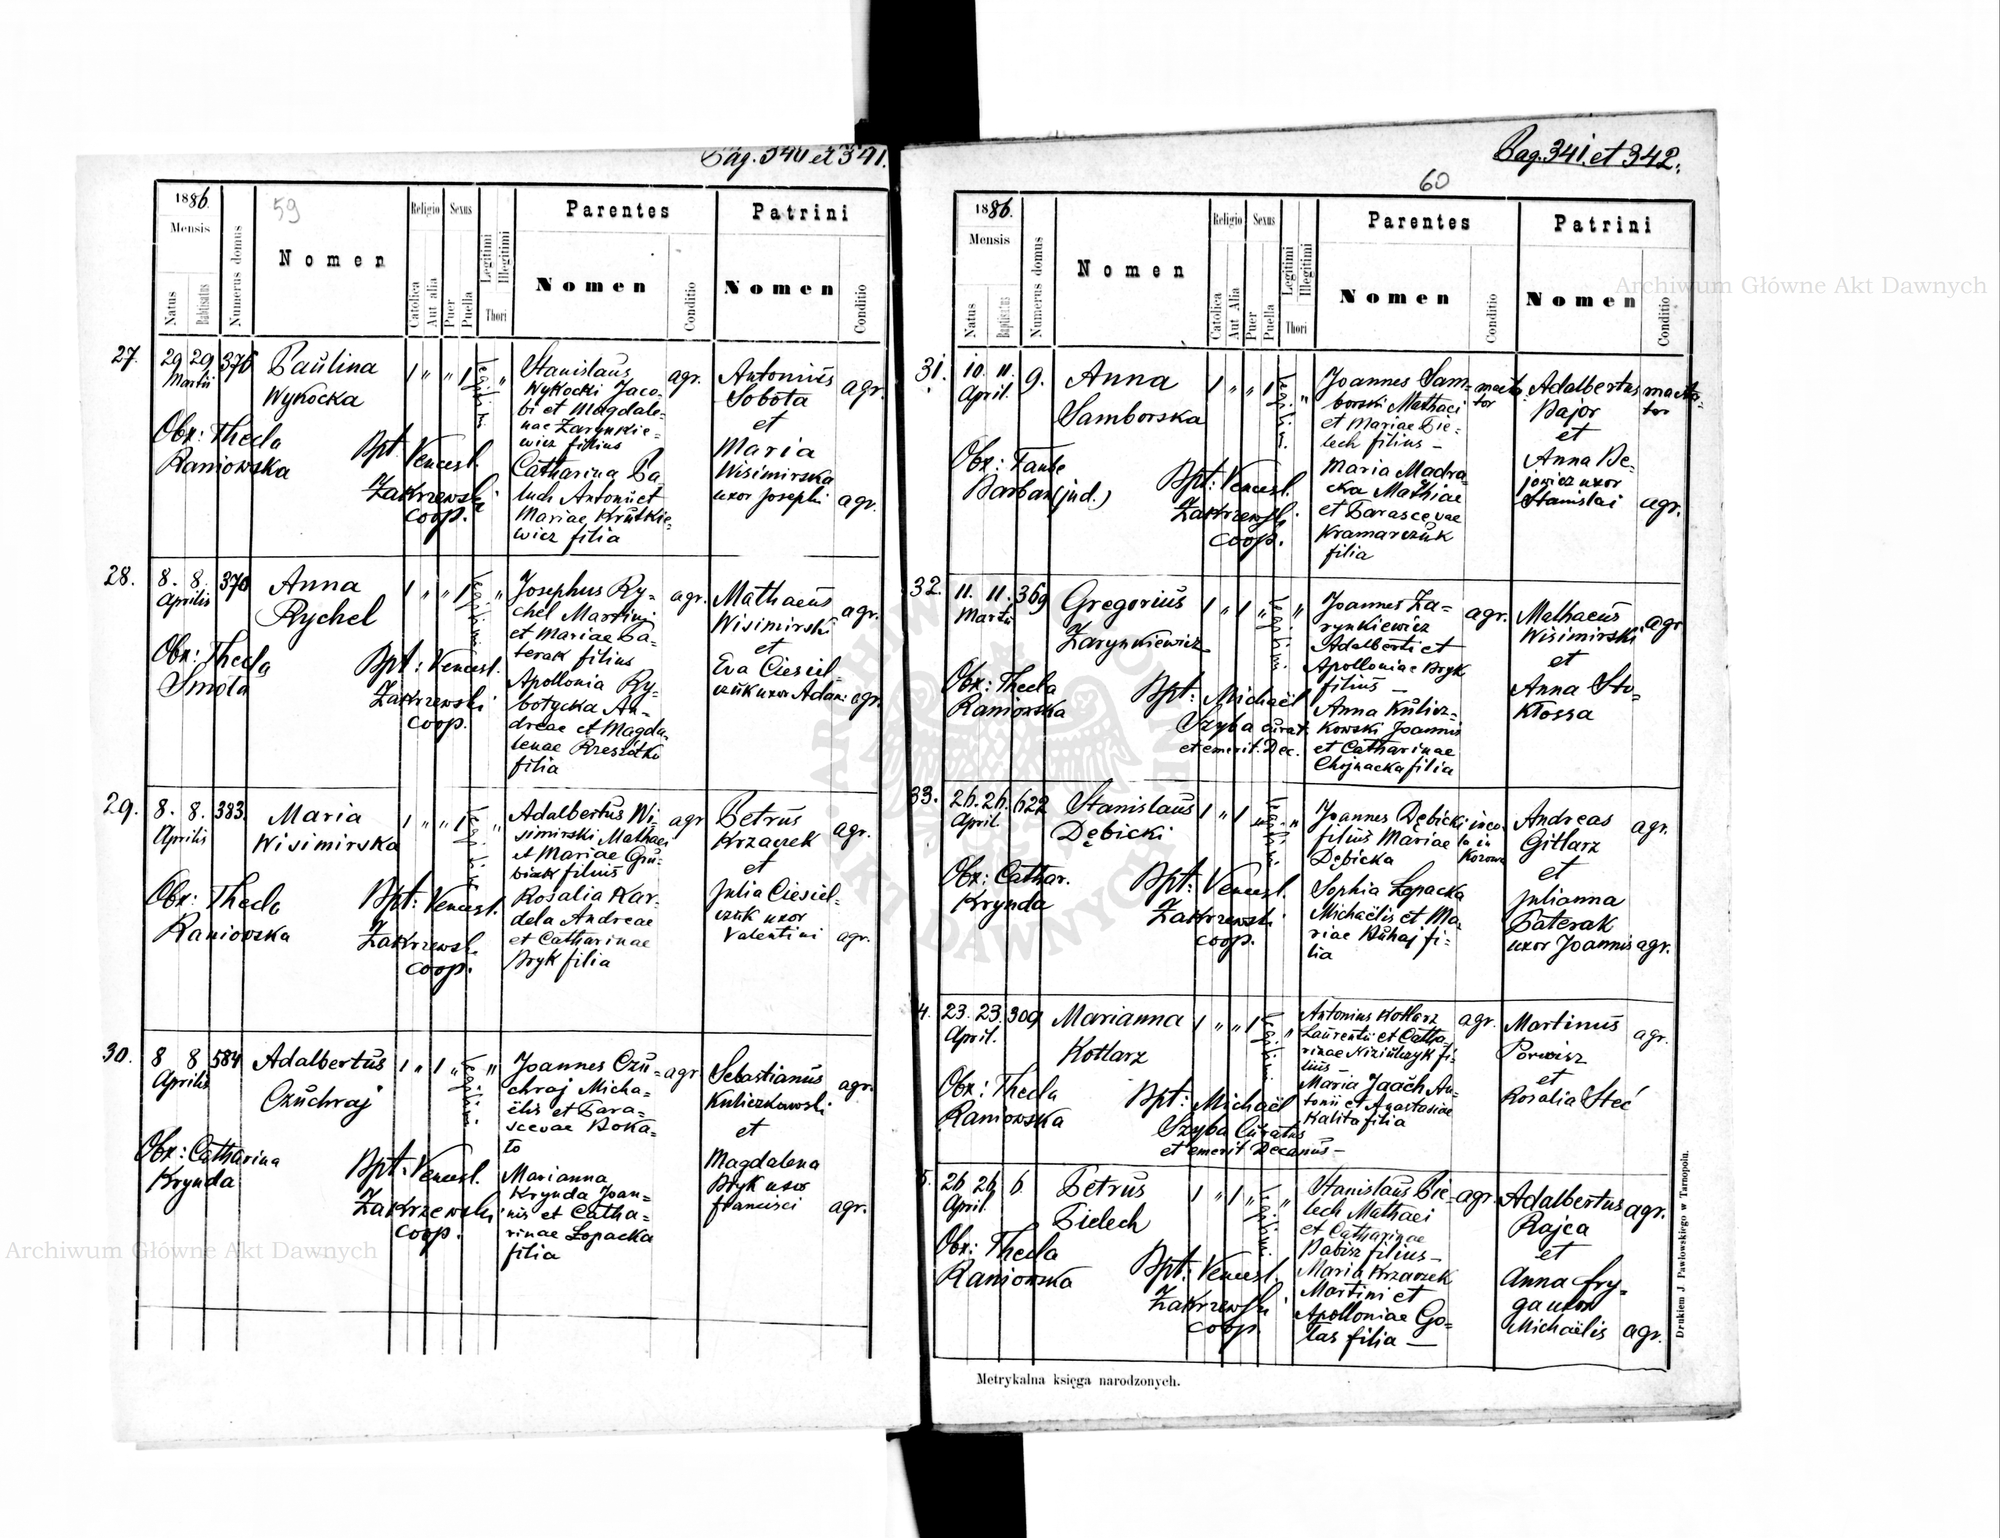 Pag. 340 et 341.
1886
Mensis
Natus
Babtisatus
Numerus domus
59
Nomen
Religio
Catolica
Aut alia
Sexus
Puer
Puella
Legitimi
Illegitimi
Thori
Parentes
Nomen
Conditio
Patrini
Nomen
Conditio
27.
29 29 376
Martii
Paulina
Wykocka
1 " " 1 "
Obx: Thecla
Raniowska
Bpt: Vencesl.
Zakrzewski
coop.
Stanislaus
Wykocki Jaco-
bi et Magdale-
nae Zarynkie-
wicz filius
Catharina Pa-
luch Antonii et
Mariae Krutkie-
wicz filia
agr.
Antonius
Sobota
et
Maria
Wisimirska
uxor Josephi
agr.
agr.
28.
8. 8. 370
Aprilis
Anna
Rychel
1 " " 1 "
Obx: Thecla
Smola
Bpt: Vencesl.
Zakrzewski
coop.
Josephus Ry-
chel Martini
et Mariae Pa-
terak filius
Apollonia Ry-
botycka An-
dreae et Magda-
lenae Rzeszutko
filia
agr.
Mathaeus
Wisimirski
et
Eva Ciesiel-
czuk uxor Adam:
agr.
agr.
29.
8. 8. 383.
Aprilis
Maria
Wisimirska
1 " " 1 "
Obx: Thecla
Raniowska
Bpt: Vencesl.
Zakrzewsk.
coop.
Adalbertus Wi-
simirski Mathaei
et Mariae Gru-
biak filius
Rosalia Kar-
dela Andreae
et Catharinae
Bryk filia
agr
Petrus
Krzaczek
et
Julia Ciesiel-
czuk uxor
Valentini
agr.
agr.
30.
8 8 584
Aprilis
Adalbertus
Czuchraj
1 " 1 " "
Obx: Catharina
Krynda
Bpt: Vencesl.
Zakrzewski
coop.
Joannes Czu-
chraj Micha-
ëlis et Para-
scevae Boka-
to
Marianna
Krynda Joan-
nis et Catha-
rinae Łopacka
filia
agr
Sebastianus
Kuliczkowski
et
Magdalena
Bryk uxor
Francisci
agr.
agr.
Pag. 341. et 342.
60
1886.
Mensis
Natus
Baptisatus
Numerus domus
Nomen
Religio
Catolica
Aut Alia
Sexus
Puer
Puella
Legitimi
Illegitimi
Thori
Parentes
Nomen
Conditio
Patrini
Nomen
Conditio
31.
10. 11. 9.
April.
Anna
Samborska
1 " " 1 "
Obx: Taube
Barban (jud.)
Bpt: Vencesl.
Zakrzewski
coop.
Joannes Sam-
borski Mathaei
et Mariae Pie-
lech filius –
Maria Madra-
cka Mathiae
et Parascevae
Kramarczuk
filia
macta-
tor
Adalbertus
Bajor
et
Anna Be-
jowicz uxor
Stanislai
macta-
tor
agr.
32.
11. 11. 369
Martii
Gregorius
Zarynkiewicz
1 " 1 " "
Obx: Thecla
Raniowska
Bpt: Michaël
Szyba curat.
et emerit. Dec.
Joannes Za-
rynkiewicz
Adalberti et
Apolloniae Bryk
filius –
Anna Kulicz-
kowski Joannis
et Catharinae
Chojnacka filia
agr.
Mathaeus
Wisimirski
et
Anna Sto-
kłossa
agr
33.
26. 26. 622
April.
Stanislaus
Dębicki
1 " 1 " "
Obx: Cathar.
Krynda
Bpt: Vencesl.
Zakrzewski
coop.
Joannes Dębicki
filius Mariae
Dębicka
Sophia Łopacka
Michaëlis et Ma-
riae Buhaj fi-
lia
inco-
la in
Kozowa
Andreas
Gitlarz
et
Julianna
Paterak
uxor Joannis
agr.
agr.
4.
23. 23. 309
April.
Marianna
Kotlarz
1 " " 1 "
Obx: Thecla
Raniowska
Bpt: Michaël
Szyba Curatus
et emerit Decanus –
Antonius Kotlarz
Laurentii et Catha-
rinae Niziulczyk fi-
lius –
Maria Jaach An-
tonii et Anastasiae
Kalita filia
agr.
Martinus
Porwisz
et
Rosalia Steć
agr.
5.
26 26 6
April.
Petrus
Pielech
1 " 1 " "
Obx: Thecla
Raniowska
Bpt: Vencesl.
Zakrzewski
coop.
Stanislaus Pie-
lech Mathaei
et Catharinae
Babisz filius –
Maria Krzaczek
Martini et
Apolloniae Go-
tas filia –
agr.
Adalbertus
Rajca
et
Anna Fry-
ga uxor
Michaëlis
agr.
agr.
Metrykalna księga narodzonych.
Drukiem J. Pawłowskiego w Tarnopolu.
Archiwum Główne Akt Dawnych
Archiwum Główne Akt Dawnych